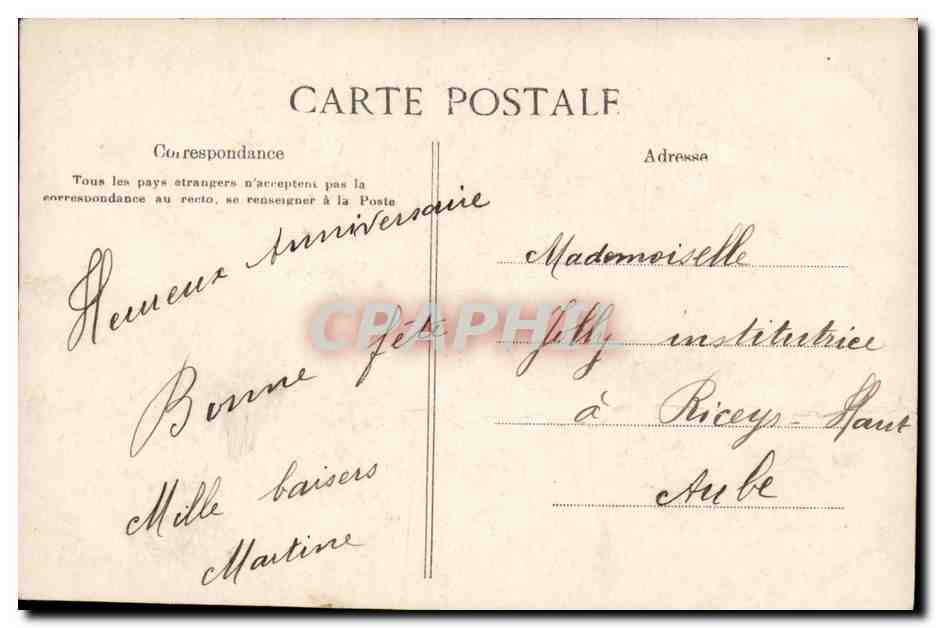 CARTE POSTALE
Correspondance
Tous les pays étrangers n'acceptent pas la
correspondance au recto, se renseigner à la Poste
Heureux Anniversaire
Bonne fête
Mille baisers
Martine
Adresse
Mademoiselle
Jolly institutrice
à Riceys-Haut
Aube
CPAPHIL